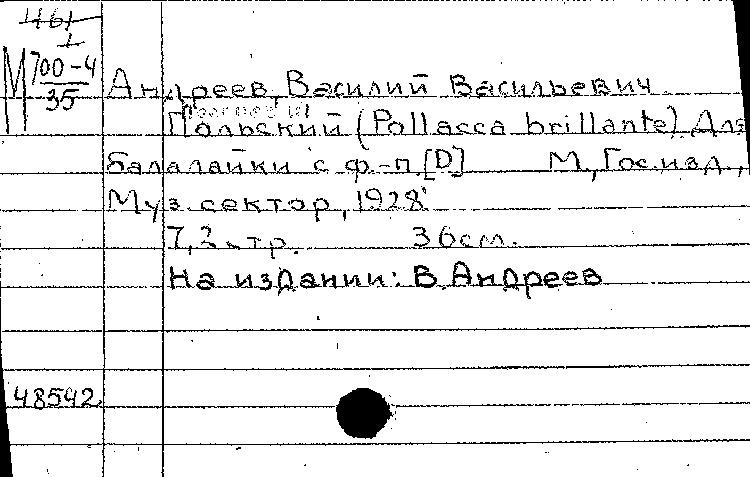 461
1
М 700-4
35
Андреев, Василий Васильевич
Польский (Pollacca brillante). Для
балалайки с ф.-п. [D] М., Гос. изд.,
Муз. сектор, 1928.
7, 2 стр. 36 см.
На издании: В. Андреев
48542